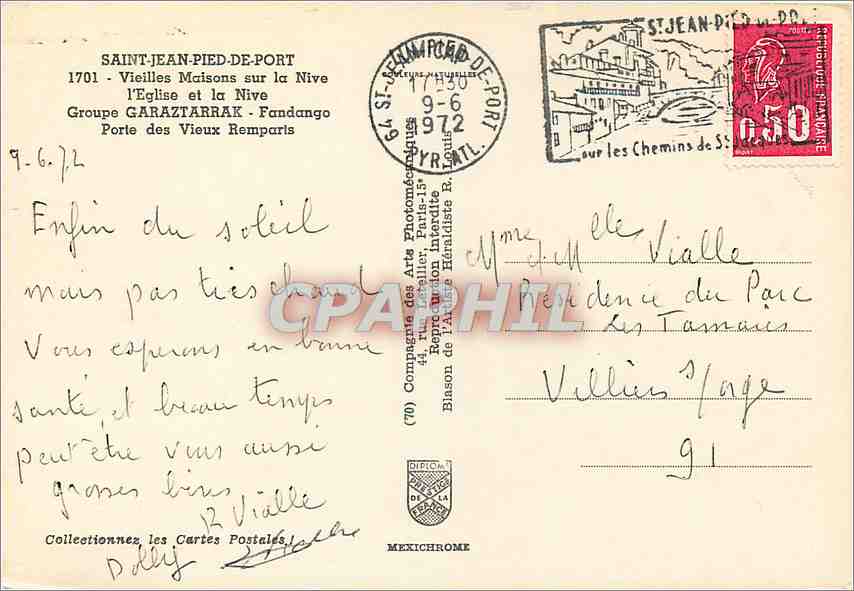 SAINT-JEAN-PIED-DE-PORT
1701 - Vieilles Maisons sur la Nive
l'Eglise et la Nive
Groupe GARAZTARRAK - Fandango
Porte des Vieux Remparts
9-6.72
Enfin du soleil
mais pas très chaud
Vous esperons en bonne
santé, et beau temps
peut être vous aussi
grosses bises
R Vialle
Dolly
Collectionnez les Cartes Postales !
64 ST-JEAN-PIED-DE-PORT
COULEURS NATURELLES
17H30
9-6
1972
PYR.ATL.
ST JEAN-PIED-DE-PORT
sur les Chemins de St Jacques
POSTES
REPUBLIQUE FRANCAISE
0,50
(70) Compagnie des Arts Photomécaniques
44, rue Letellier, Paris-15e
Reproduction interdite
Blason de l'Artiste Héraldiste R. Louis
CPAPHIL
Mme & Mlle Vialle
Résidence du Parc
Les Tamaris
Villiers s/orge
91
DIPLOM
PRESTIGE
DE LA
FRANCE
MEXICHROME